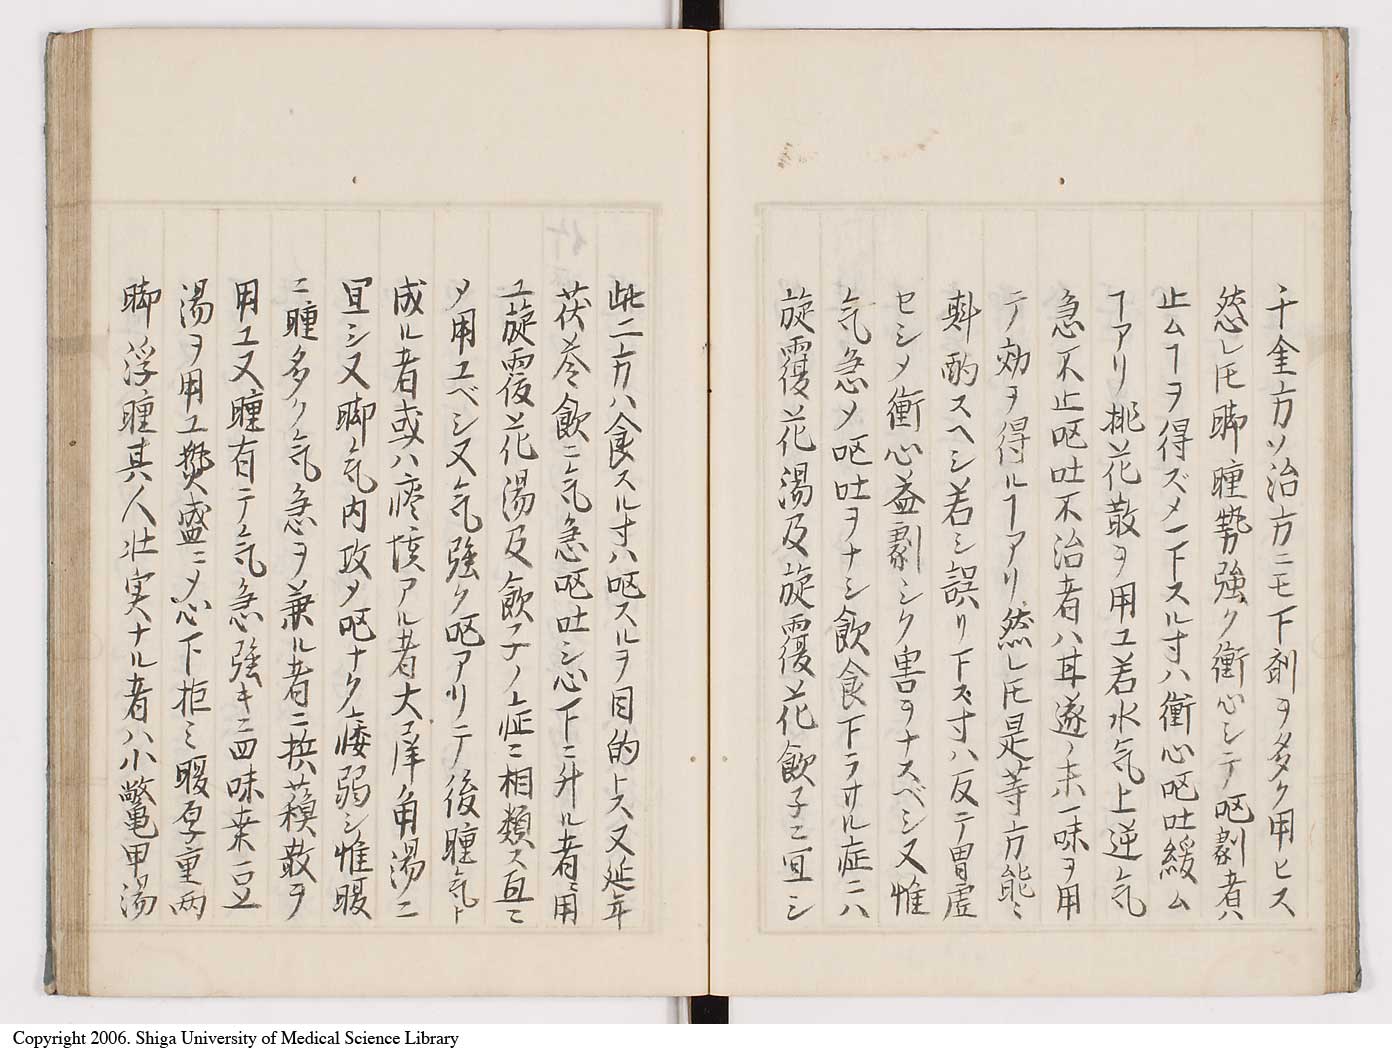 千金方ノ治方ニモ下剤ヲ多ク用ヒス
然レ𪜈脚腫勢強ク衝心シテ呕劇者ハ
止ムヿヲ得ズメ一下スル寸ハ衝心呕吐緩ム
ヿアリ桃花散ヲ用ユ若水気上逆気
急不止呕吐不治者ハ甘遂ノ末一味ヲ用
テ効ヲ得ルヿアリ然レ𪜈是等方能々
斟酌スヘシ若シ誤リ下ス寸ハ反テ胃虚
セシメ衝心益劇シク害ヲナスベシ又惟
気急メ呕吐ヲナシ飲食下ラサル症ニハ
旋覆花湯及旋覆花飲子ニ宜シ
此二方ハ食スル寸ハ呕スルヲ目的トス又延年
茯苓飲ニ気急呕吐シ心下ニ升ル者ニ用
ユ旋覆花湯及飲子ノ症ニ相類ス宜ク
メ用ユベシ又気強ク呕アリテ後腫気ト
成ル者或ハ痰咳アル者大子洋角湯ニ
宜シ又脚気内攻メ呕ナク痿弱シ惟腰
ニ腫多ク気急ヲ兼ル者ニ檳蘓散ヲ
用ユ又腫有テ気急強キニ四味桒豆
湯ヲ用ユ熱盛ニメ心下拒ミ暖厚重両
脚浮腫其人壮実ナル者ハ小鼈甲湯
Copyright 2006. Shiga University of Medical Science Library